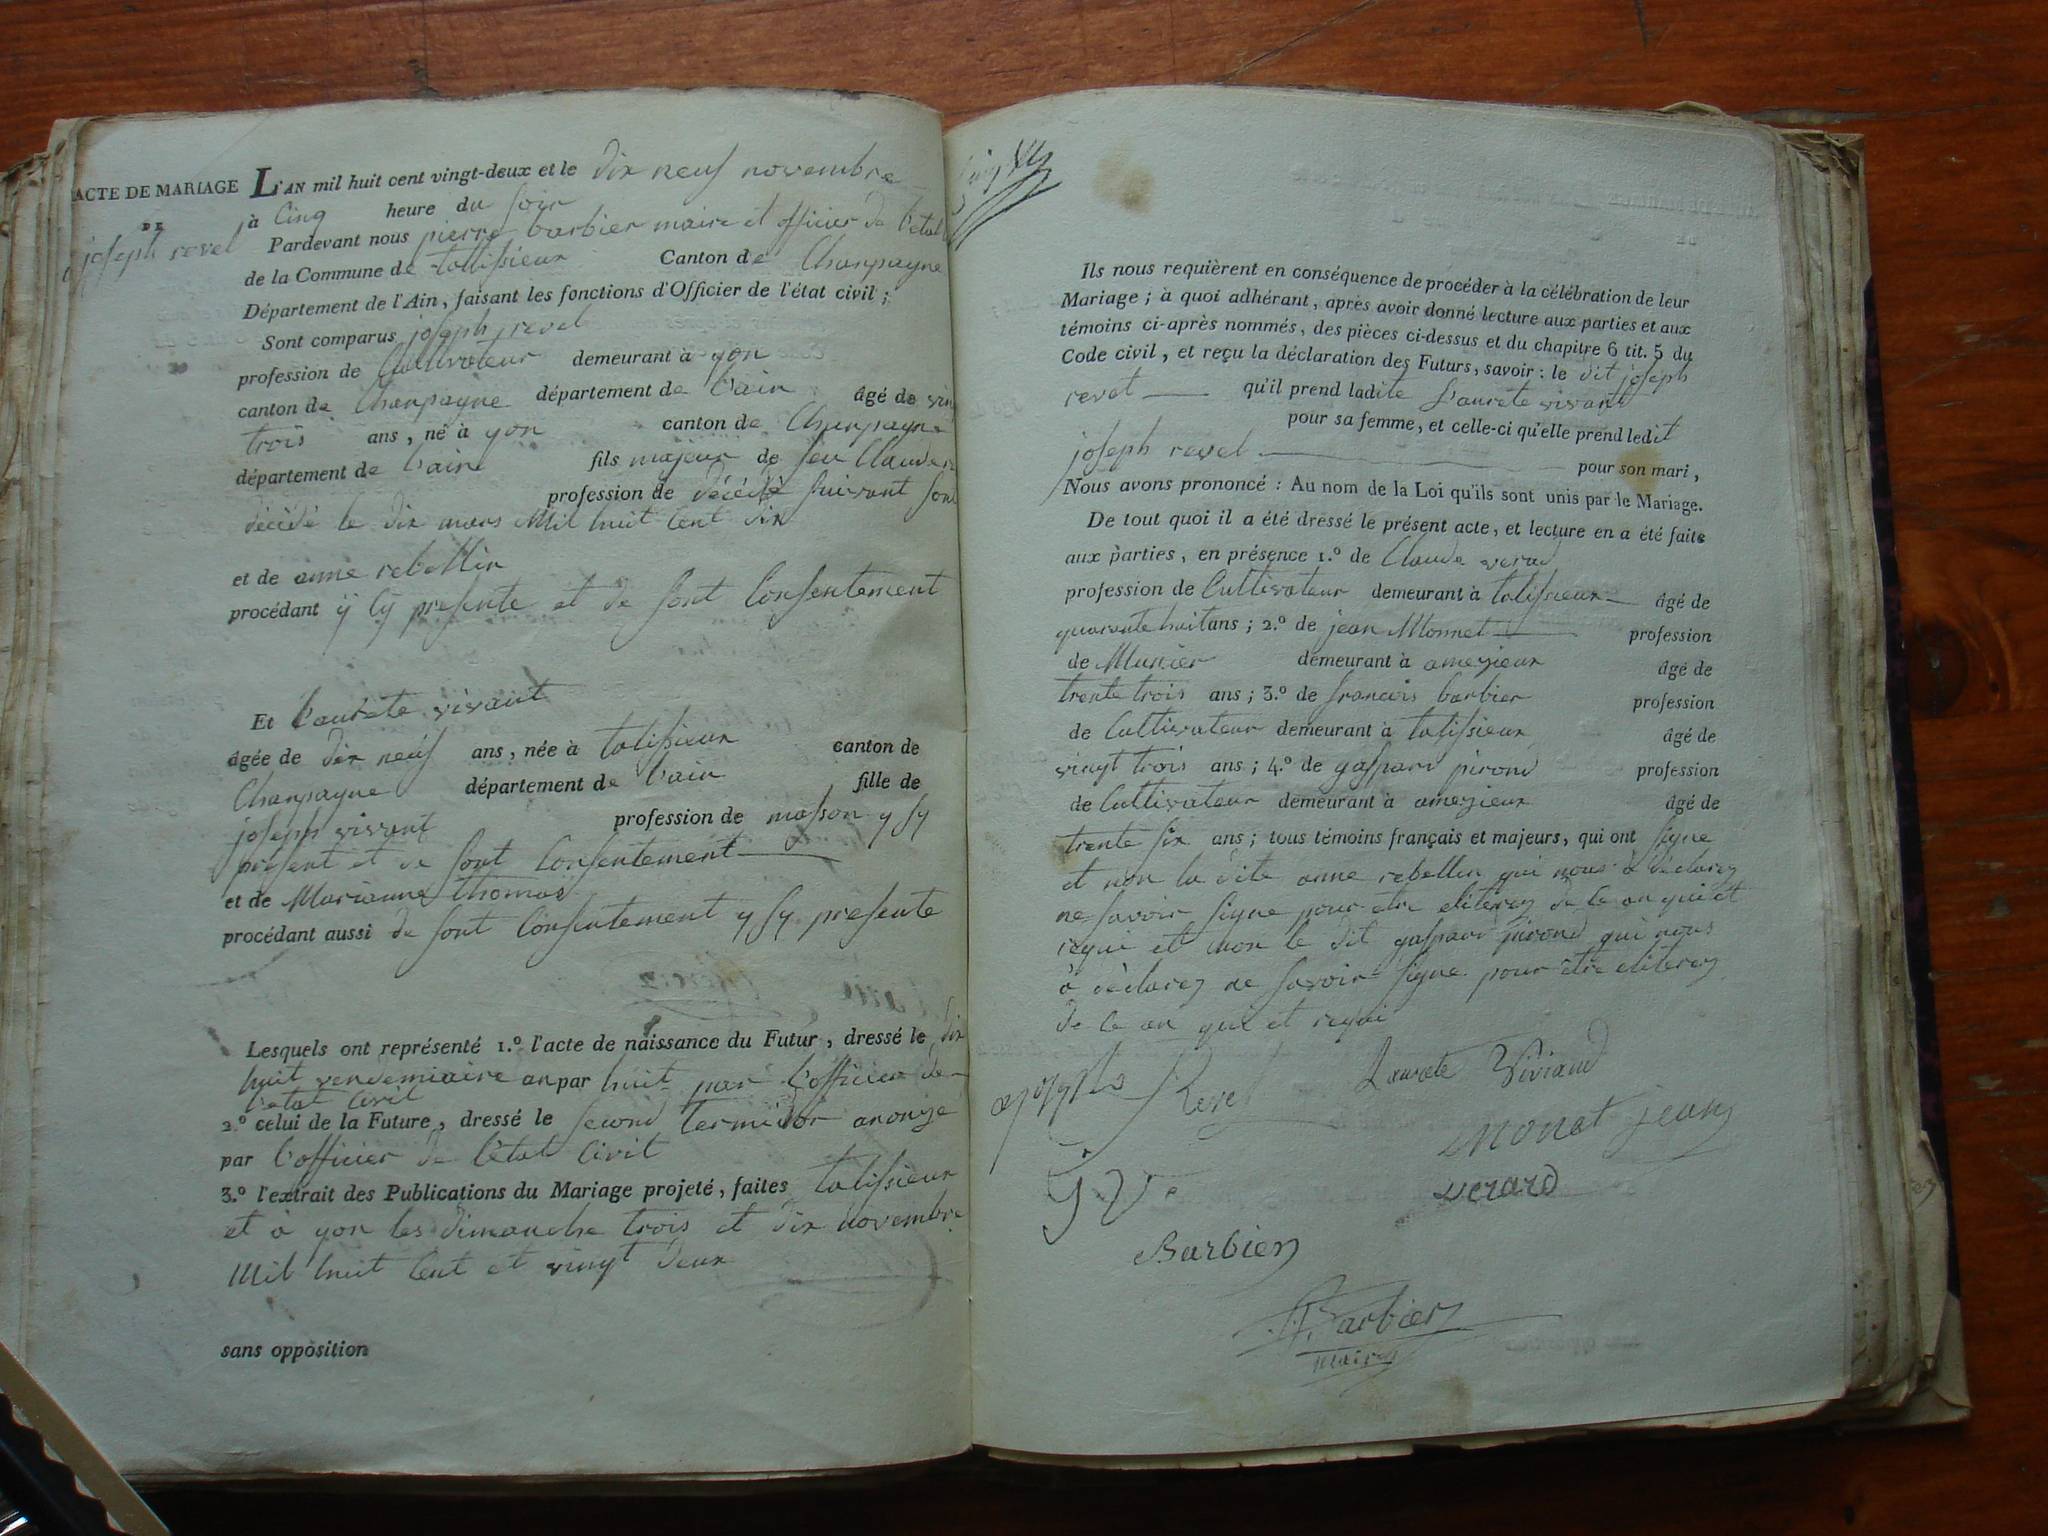 ACTE DE MARIAGE
DE
joseph revel
L'AN mil huit cent vingt-deux et le dix neuf novembre
à Cinq heure du soir
Pardevant nous pierre barbier maire et officier de l'etat
de la Commune de talissieux Canton de Champagne
Département de l'Ain, faisant les fonctions d'Officier de l'état civil ;
Sont comparus joseph revel
profession de Cultivateur demeurant à yon
canton de Champagne département de l'ain âgé de vin
trois ans, né à yon canton de Champagne
département de l'ain fils majeur de feu Claude
profession de décédé suivant son
décédé le dix mars Mil huit Cent dix
et de anne rebellin
procédant y sy presente et de sont Consentement
Et l'aurete vivant
âgée de dix neuf ans, née à talissieux canton de
Champagne département de l'ain fille de
joseph vivant profession de masson y sy
present et de sont Consentement
et de Marianne thomas
procédant aussi de sont Consentement y sy presente
Lesquels ont représenté 1.º l'acte de naissance du Futur, dressé le dix
huit vendemiaire an par huit par l'officier de
l'etat Civil
2.º celui de la Future, dressé le second termidor an onze
par l'officier de l'état Civil
3.º l'extrait des Publications du Mariage projeté, faites talissieux
et à yon les dimanche trois et dix novembre
Mil huit Cent et vingt deux
sans opposition
Ils nous requièrent en conséquence de procéder à la célébration de leur
Mariage ; à quoi adhérant, après avoir donné lecture aux parties et aux
témoins ci-après nommés, des pièces ci-dessus et du chapitre 6 tit. 5 du
Code civil, et reçu la déclaration des Futurs, savoir : le dit joseph
revel qu'il prend ladite L'aurete vivant
pour sa femme, et celle-ci qu'elle prend ledit
joseph revel pour son mari,
Nous avons prononcé : Au nom de la Loi qu'ils sont unis par le Mariage.
De tout quoi il a été dressé le présent acte, et lecture en a été faite
aux parties, en présence 1.º de Claude verad
profession de Cultivateur demeurant à talissieux âgé de
quarante huit ans ; 2.º de jean Monnet profession
de Munier demeurant à amezieux âgé de
trente trois ans ; 3.º de francois barbier profession
de Cultivateur demeurant à talissieux âgé de
vingt trois ans ; 4.º de gaspard pirond profession
de Cultivateur demeurant à amezieux âgé de
trente six ans ; tous témoins français et majeurs, qui ont signe
et non la dite anne rebellin qui nous à déclarez
ne savoir signe pour etre eliterez de ce an qui et
requi et non le dit gaspard pirond qui nous
à déclarez ne savoir signe pour être eliterez
de ce an qui et requi
Revel Laurete Viviand
Monet jean
J V
verard
Barbier
P. Barbier
maire